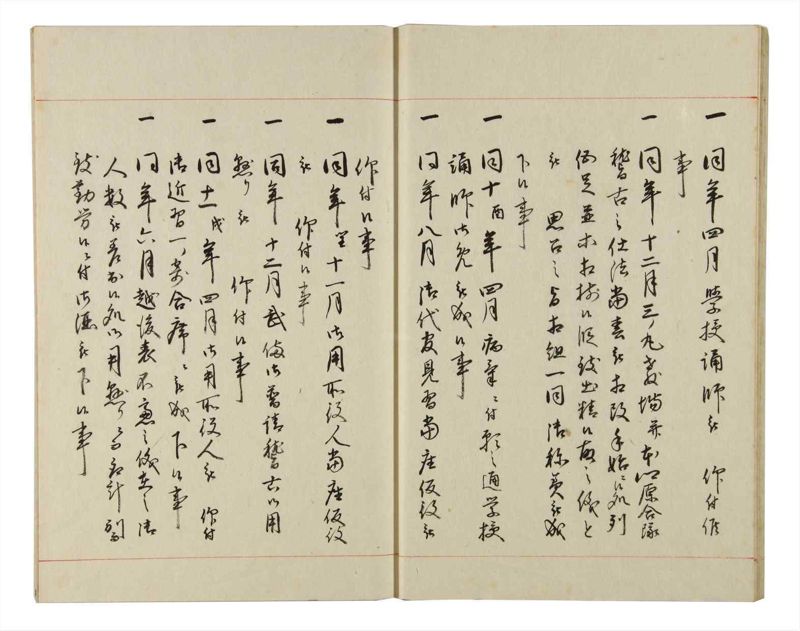 一 同年四月学校誦師被 仰付候
事
一 同年十二月三ノ丸教場并本原合隊
稽古之仕法当春被相改手始ニ候処列
伍足並等相揃候段致出精候故之儀と
被 思召之旨相組一同御称美被成
下候事
一 同十酉年四月病気ニ付願之通学校
誦師御免被成候事
一 同年八月御代官見習当座仮役被
仰付候事
一 同年 十一月御用所役人当座仮役
被 仰付候事
一 同年十二月武備御普請稽古御用
懸り被 仰付候事
一 同十一戌年四月御用所役人被 仰付
御近習一ノ寄合席ニ被成下候事
一 同年六月越後表不穏之儀在之御
人数被差出候処御用懸り旨取計別而
致勤労候ニ付御酒被下候事